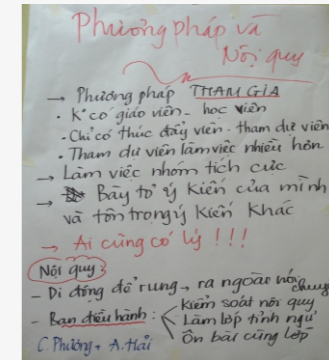 Phương pháp và
Nội quy
→ Phương pháp THAM GIA
• K° có giáo viên - học viên
• Chỉ có thúc đẩy viên - tham dự viên
• Tham dự viên làm việc nhiều hơn
→ Làm việc nhóm tích cực
→ Bày tỏ ý kiến của mình
và tôn trọng ý kiến khác
→ Ai cũng có lý !!!
Nội quy:
- Di động để rung → ra ngoài nói chung
- Ban điều hành: Kiểm soát nội quy
Làm lớp tỉnh ngủ
Ôn bài cùng lớp
C. Phương + A. Hải